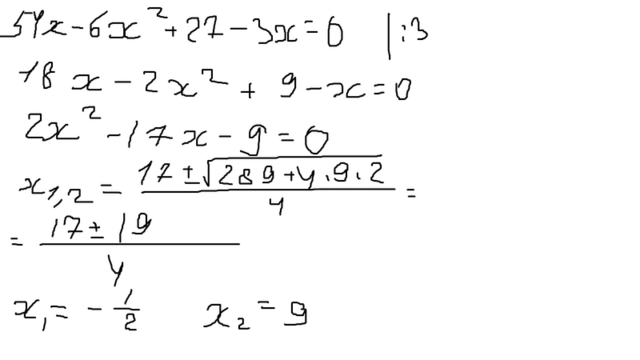 54x - 6x² + 27 - 3x = 0 | :3
18x - 2x² + 9 - x = 0
2x² - 17x - 9 = 0
x₁,₂ = (17 ± √(289 + 4·9·2))/4 =
= (17 ± 19)/4
x₁ = -1/2 x₂ = 9